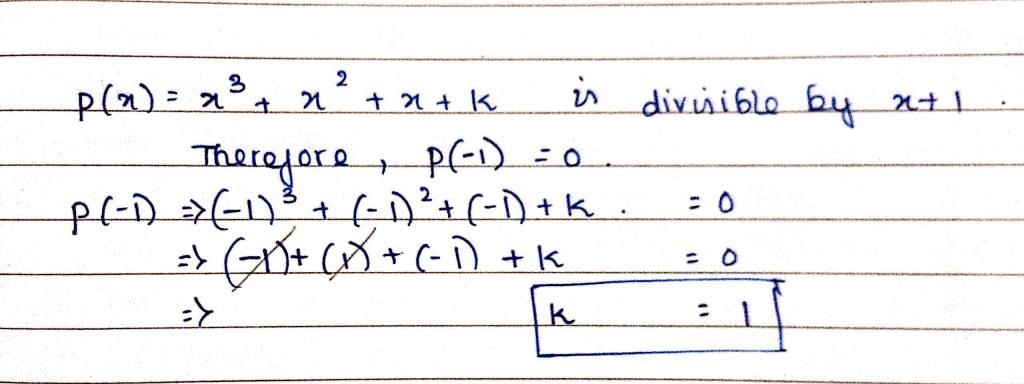 p(x) = x³ + x² + x + k is divisible by x+1.
Therefore, p(-1) = 0.
p(-1) ⇒ (-1)³ + (-1)² + (-1) + k. = 0
⇒ (-1) + (1) + (-1) + k = 0
⇒ k = 1